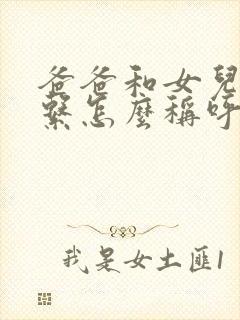 爸爸和女兒
繫怎麼稱呼
我是女土匪1